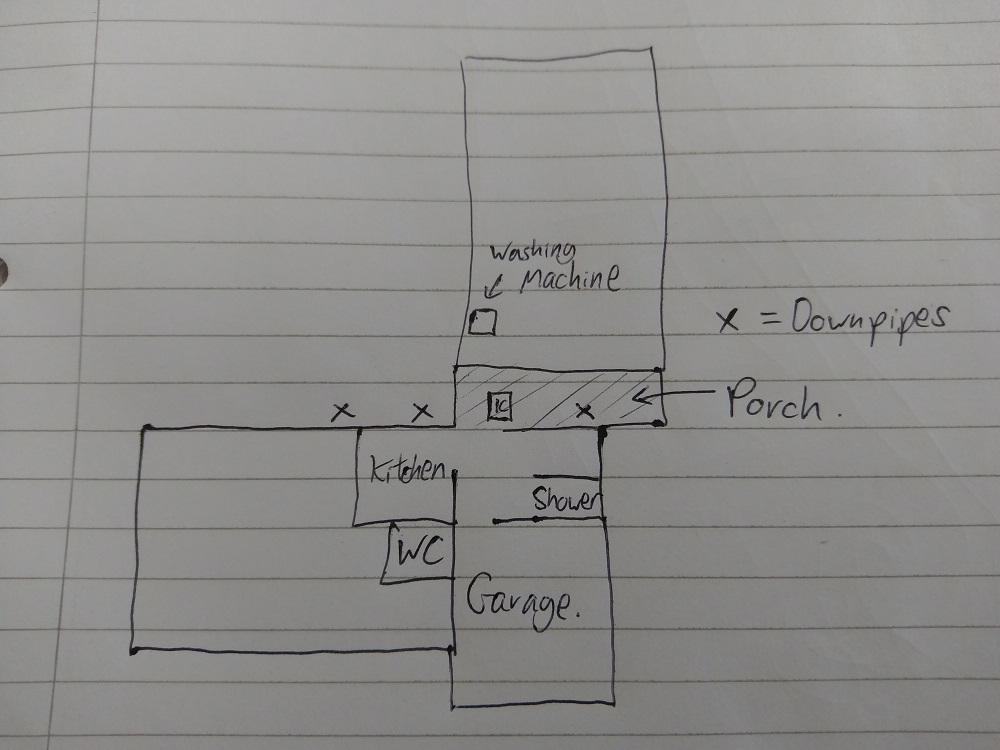 Washing
Machine
x = Downpipes
x
x
IC
x
Porch.
Kitchen
Shower
WC
Garage.